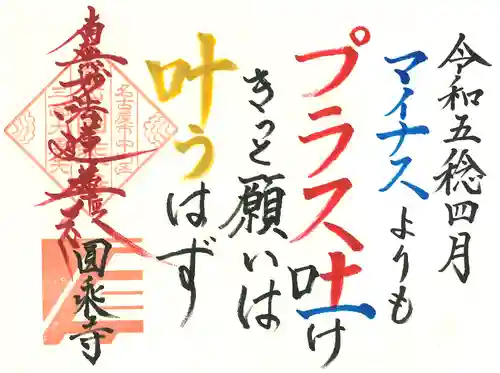 令和五稔四月
マイナスよりも
プラス吐け
きっと願いは
叶うはず
名古屋市中区
南無妙法蓮華経
圓乗寺